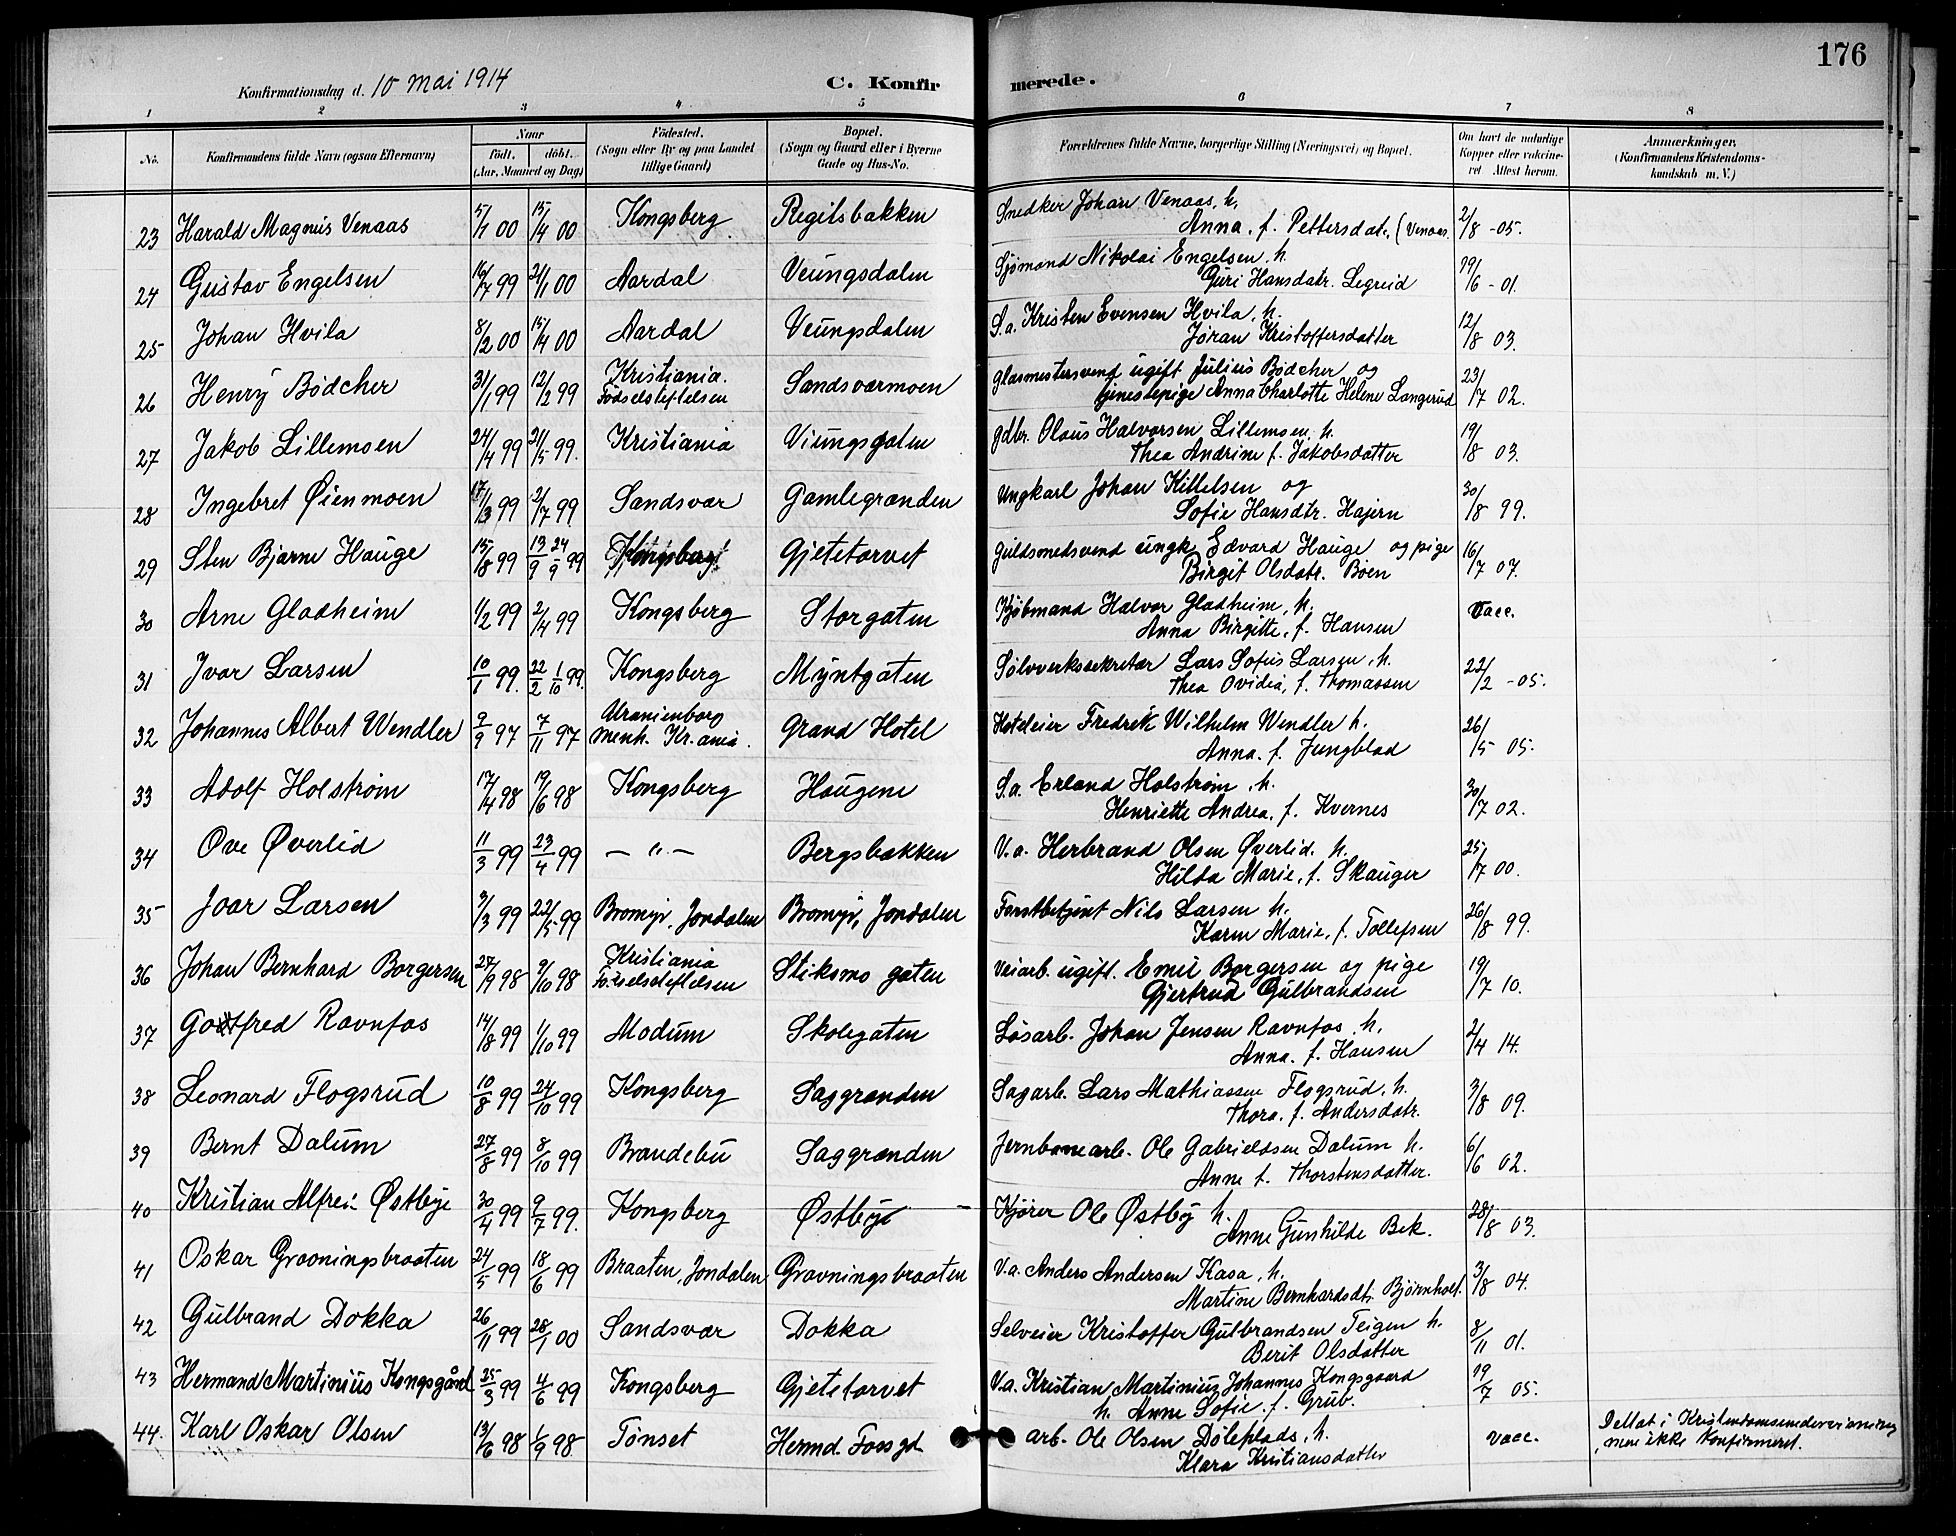 176
Konfirmationsdag d. 10 mai 1914
C. Konfirmerede.
1 2 3 4 5 6 7 8
No. Konfirmandens fulde Navn (ogsaa Efternavn) Naar født. døbt. (Aar, Maaned og Dag) Fødested. (Sogn eller By og paa Landet tillige Gaard) Bopæl. (Sogn og Gaard eller i Byerne Gade og Hus-No.) Forældrenes fulde Navne, borgerlige Stilling (Næringsvei) og Bopæl. Om havt de naturlige Kopper eller vaccineret. Attest herom. Anmærkninger. (Konfirmandens Kristendomskundskab m. V.)
23 Harald Magnus Venaas 5/1 00 15/4 00 Kongsberg Regitsbakken Snedker Johan Venaas, h. 2/8 -05.
Anna, f. Pettersdatr. (Venaas.
24 Gustav Engelsen 16/7 99 21/1 00 Aardal Veungsdalen Sjømand Nikolai Engelsen h. 19/6 -01.
Guri Hansdatr. Legreid
25 Johan Hvila 8/2 00 15/4 00 Aardal Veungsdalen S.a. Kristen Evensen Hvila, h. 12/8 03.
Jøran Kristoffersdatter
26 Henry Bødcher 31/1 99 12/2 99 Kristiania. Fødselsstiftelsen Sandsværmoen Glasmestersvend ugift Julius Bødcher og 23/7 02.
tjenestepige Anna Charlotte Helene Langerud
27 Jakob Lillemoen 24/4 99 21/5 99. Kristiania Viungsgaten gdbr. Olaus Halvorsen Lillemoen, h. 19/8 03.
Thea Andrine f. Jakobsdatter
28 Ingebret Øienmoen 17/3 99 2/7 99 Sandsvær Gamlegrænden Ungkarl Johan Kittelsen og 30/8 99.
Sofie Hansdtr. Hajern
29 Sten Bjarne Hauge 15/8 99 13/9 24/9 99 Kongsberg Gjetetorvet Guldsmedsvend ungk. Edvard Hauge og pige 16/7 07.
Birgit Olsdatr. Boen
30 Arne Gladheim 1/2 99 2/4 99 Kongsberg Storgaten Kjøbmand Halvor Gladheim, h. Vacc.
Anna Birgitte, f. Hansen
31 Ivar Larsen 10/1 99. 22/2 1/10 99. Kongsberg Myntgaten Sølvverkssekretær Lars Sofus Larsen, h. 22/2 -05.
Thea Ovidia, f. Thomassen
32 Johannes Albert Wendler 9/9 97 7/11 97 Uranienborg menh. Kr.ania. Grand Hotel Hoteleier Fredrik Wilhelm Wendler h. 26/5 05.
Anna. f. Jungblad
33 Adolf Holstrøm 17/4 98 19/6 98 Kongsberg Haugene S.a. Erland Holstrøm, h. 30/7 02.
Henriette Andrea, f. Kvernes
34 Ove Øverlid 11/3 99 23/4 99 — " — Bergsbakken V.a. Herbrand Olsen Øverlid. h. 25/7 00.
Hilda Marie, f. Skauger
35 Joar Larsen 3/3 99 22/5 99 Bromyr, Jondalen Bromyr, Jondalen Forstbetjent Nils Larsen h. 26/8 99.
Karen Marie, f. Tollefsen
36 Johan Bernhard Borgersen 27/9 98 9/10 98 Kristiania Fødselsstiftelsen Stiksmo gaten Veiarb. ugift. Emil Borgersen og pige 19/7 10.
Gjertrud Gulbrandsen
37 Gotfred Ravnfos 14/8 99 1/10 99 Modum Skolegaten Løsarb. Johan Jensen Ravnfos h. 2/4 14.
Anna. f. Hansen
38 Leonard Flogsrud 10/8 99 24/10 99 Kongsberg Saggrænden Sagarb. Lars Mathiassen Flogsrud, h. 3/8 09.
Thora. f. Andersdatr.
39 Bernt Dalum 27/8 99 8/10 99 Brandebu Saggrænden Jernbanearb. Ole Gabrielsen Dalum h. 6/6 02.
Anne f. Thorstensdatter.
40 Kristian Alfred Østbye 30/4 99 9/7 99. Kongsberg Østbye Kjører Ole Østby h. 28/8 03.
Anne Gunhilde Bek.
41 Oskar Gravningsbraaten 24/5 99 18/6 99 Braaten, Jondalen Gravningsbraaten V.a. Anders Andersen Kasa, h. 3/8 04.
Martine Bernhardsdt. Bjørnholt.
42 Gulbrand Dokka 26/11 99 28/1 00 Sandsvær Dokka Selveier Kristoffer Gulbrandsen Teigen h. 8/11 01.
Berit Olsdatter
43 Hermand Martinius Kongsgård 25/3 99 4/6 99 Kongsberg Gjetetorvet V.a. Kristian Martinius Johannes Kongsgaard 19/7 05.
h. Anne Sofie. f. Grub.
44. Karl Oskar Olsen 13/6 98 1/9 98 Tønset Hermd. Fossgt arb. Ole Olsen Døleplads, h. vacc. Deltat i Kristendomsundervisning,
Klara Kristiansdatter men ikke konfirmeret.